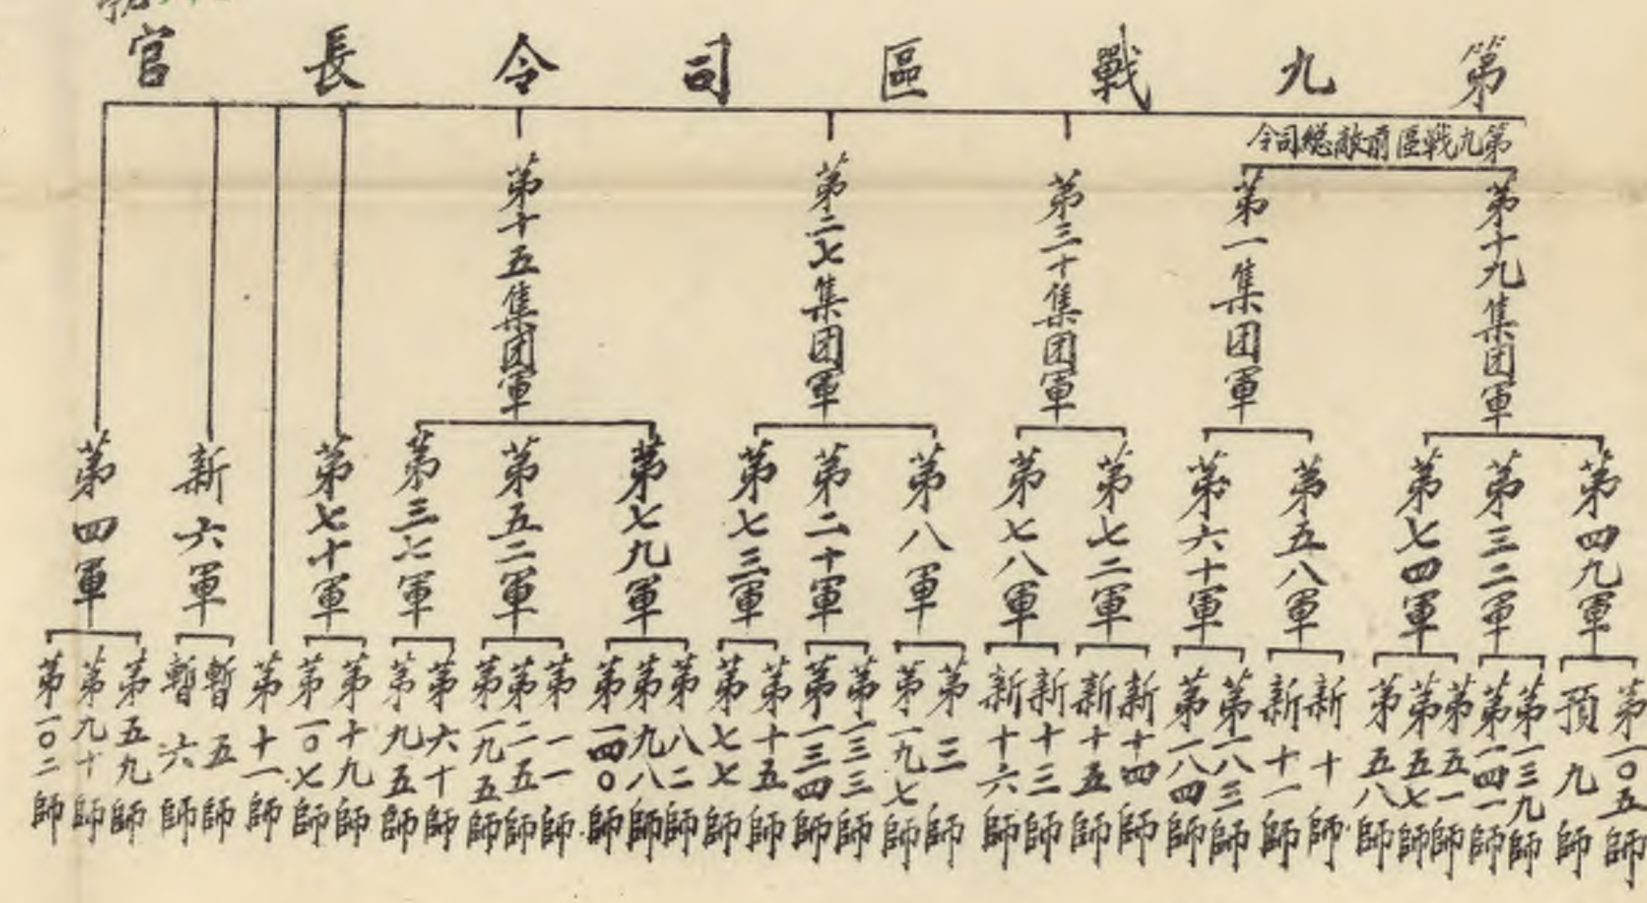 第九戰區司令長官
第九戰區前敵總司令
第十九集团軍
第一集团軍
第三十集团軍
第二七集团軍
第十五集团軍
第四九軍
第三二軍
第七四軍
第五八軍
第六十軍
第七二軍
第七八軍
第八軍
第二十軍
第七三軍
第七九軍
第五二軍
第三七軍
第七十軍
新六軍
第四軍
第一〇五師
預九師
第一三九師
第一四一師
第五一師
第五七師
第五八師
新十師
新十一師
第一八三師
第一八四師
新十四師
新十五師
新十三師
新十六師
第三師
第一九七師
第一三三師
第一三四師
第十五師
第七七師
第八二師
第九八師
第一四〇師
第一一師
第二五師
第一九五師
第六十師
第九五師
第十九師
第一〇七師
第十一師
暫五師
暫六師
第五九師
第九十師
第一〇二師